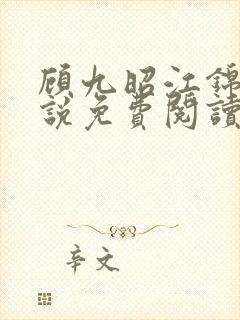 顾九昭江锦
說免費閱讀
辛文